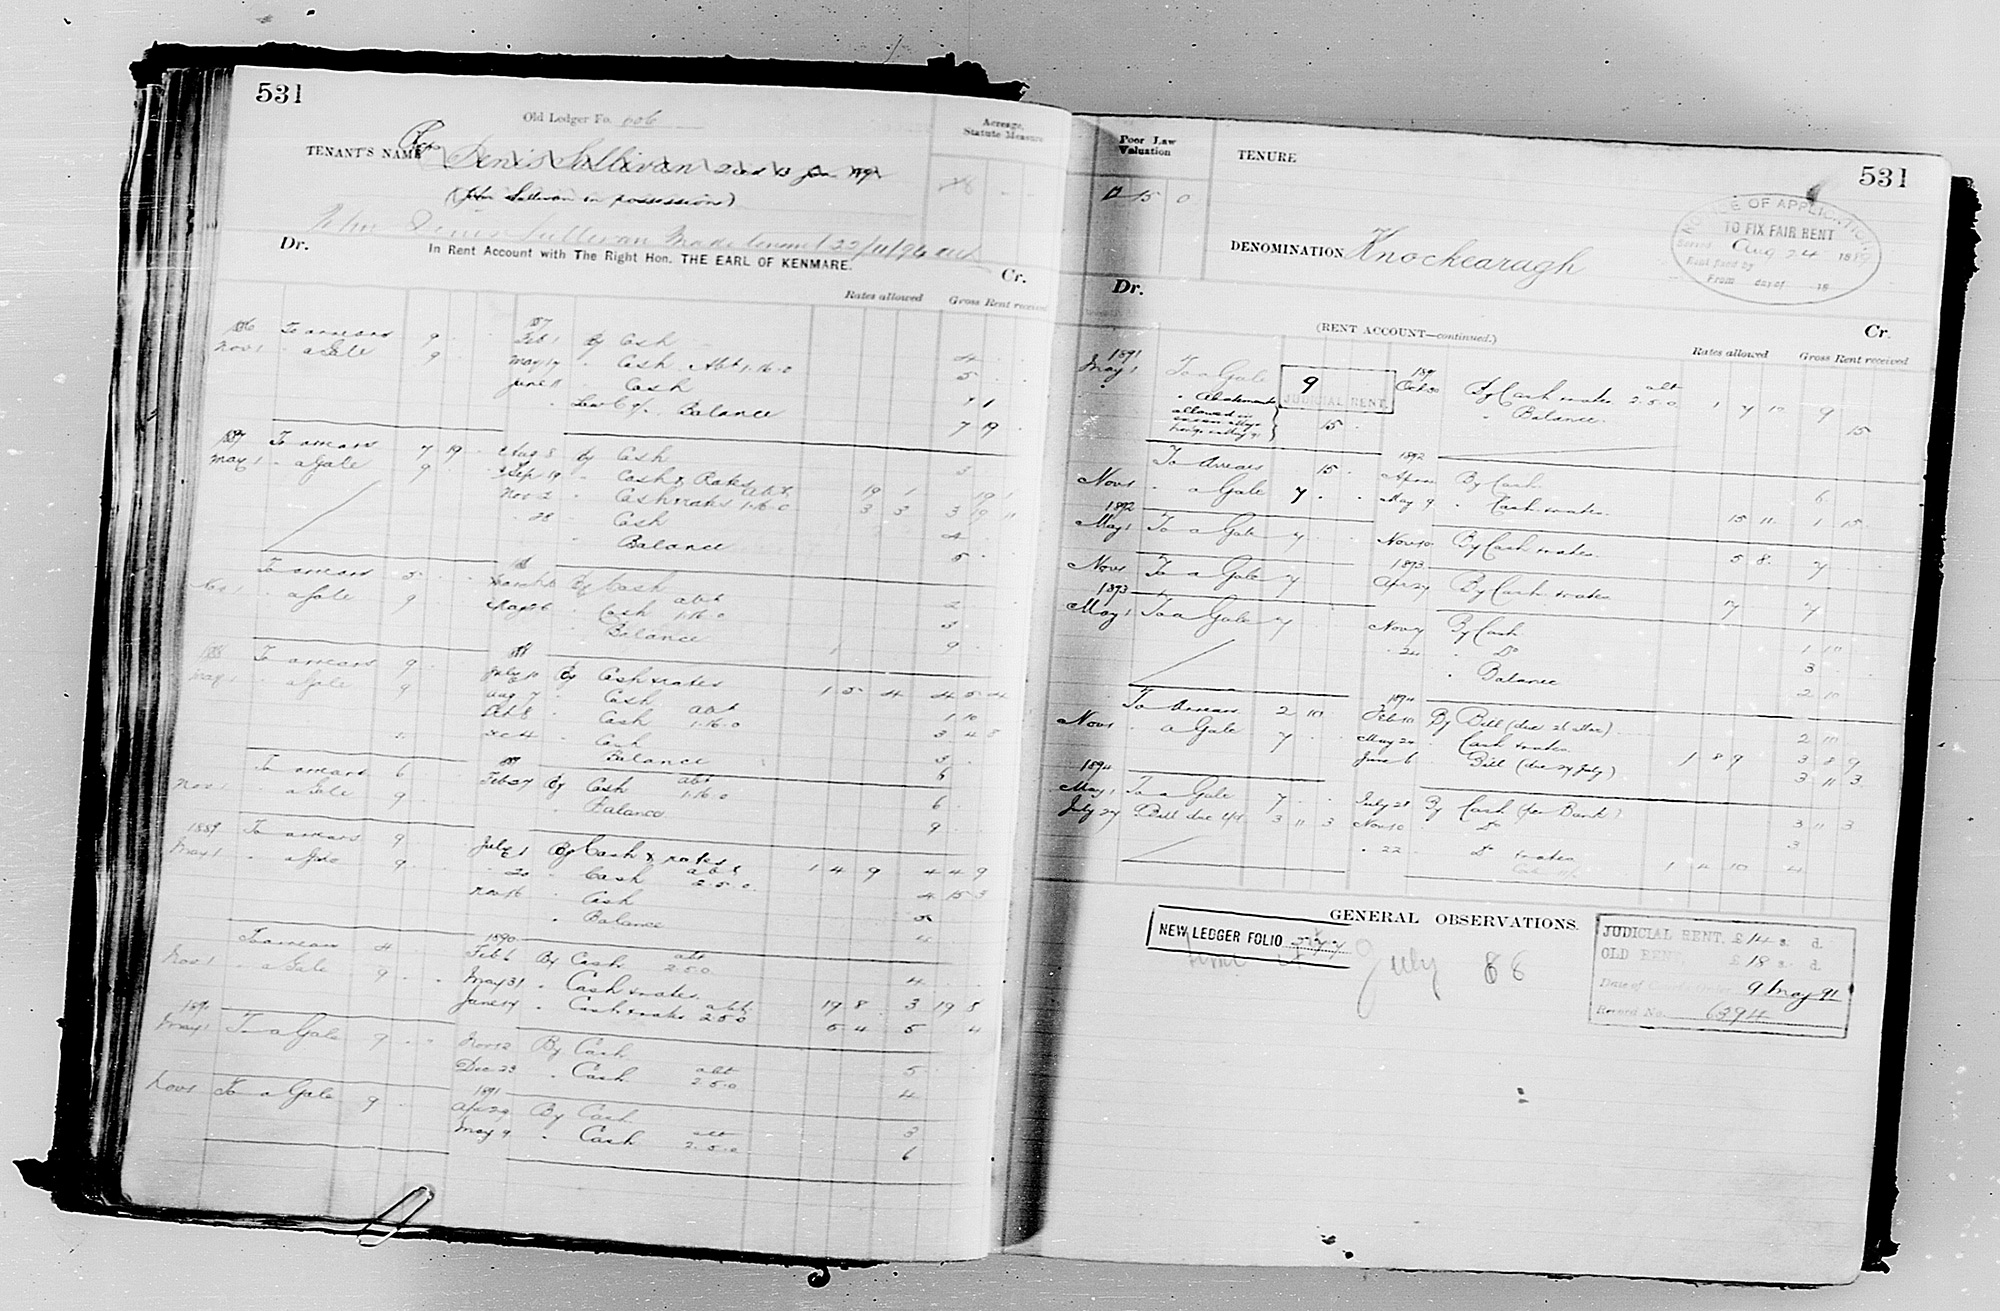 531
Old Ledger Fo. 606
TENANT'S NAME Reps Denis Sullivan
(John Sullivan in possession)
John Denis Sullivan made tenant 22/11/94
Dr. In Rent Account with The Right Hon. THE EARL OF KENMARE. Cr.
Acreage, Statute Measure
Rates allowed Gross Rent received
1886 To arrears 9 87 Feb 1 By Cash 4
Nov 1 " a Gale 9 May 17 " Cash Abt 1.16.0 5
June 11 " Cash
" Balance 7 19
1887 To arrears 7 19 Aug 8 By Cash 3
May 1 " a Gale 9 Sep 19 " Cash & Rates 19 1 19 1
Nov 2 " Cash & rates abt 1.16.0 3 3 3 19 11
" 28 " Cash 4
" Balance 5
To arrears 5 By Cash 2
Nov 1 " a Gale 9 " Cash abt 1.16.0 3
" Balance 9
88 To arrears 9 88 July 10 By Cash & rates 1 5 4 4 5 4
May 1 " a Gale 9 Aug 7 " Cash 1 10
Oct 8 " Cash abt 1.16.0 3 4 8
Dec 4 " Cash 3
Balance 6
To arrears 6 89 Feb 27 By Cash abt 1.16.0 6
Nov 1 " a Gale 9 " Balance 9
1889 To arrears 9 July 1 By Cash & rates 1 4 9 4 4 9
May 1 " a Gale 9 " 20 " Cash abt 2.5.0 4 15 3
Nov 16 " Cash
" Balance 4
To arrears 4 1890 Feb 6 By Cash abt 2.5.0 4
Nov 1 " a Gale 9 May 31 " Cash & rates 19 8 3 19 8
June 14 " Cash & rates abt 2.5.0 5 4 5 4
1890 May 1 To a Gale 9 Nov 12 By Cash 5
Dec 23 " Cash abt 2.5.0 4
Nov 1 To a Gale 9 1891 Apr 29 By Cash 3
May 9 " Cash abt 2.5.0 6
Poor Law Valuation
12 15 0
TENURE
531
DENOMINATION Knockearagh
NOTICE OF APPLICATION
TO FIX FAIR RENT
Served Aug 24 18
Rent fixed by
From day of 18
Dr. (RENT ACCOUNT—continued.) Cr.
Rates allowed Gross Rent received
1891 May 1 To a Gale 9 JUDICIAL RENT. Oct 30 By Cash & rates abt 2.5.0 1 7 10 9
" Abatement allowed in 15 " Balance 15
To Arrears 15 1892 By Cash 6
Nov 1 " a Gale 7 May 9 " Cash & rates 15 11 1 15
1892 May 1 To a Gale 7 Nov 10 By Cash & rates 5 8 7
Nov 1 To a Gale 7 1893 Apr 27 By Cash & rates 7
1893 May 1 To a Gale 7 Nov 7 By Cash 1 10
" 24 " Do 3
" Balance 2 10
To Arrears 2 10 1894 Feb 10 By Bill (due 26 Mar) 2 10
Nov 1 " a Gale 7 May 24 " Cash & rates 1 8 9 3 8 9
June 6 " Bill (due 27 July) 3 11 3
1894 May 1 To a Gale 7 July 28 By Cash (per Bank) 3 11 3
July 27 " Bill due 3 11 3 Nov 10 " Do 3
" 22 " Do & rates 1 4 10 4
GENERAL OBSERVATIONS.
NEW LEDGER FOLIO
July 88
JUDICIAL RENT, £14 s. d.
OLD RENT, £18 s. d.
Date of 9 May 91
Record No. 6394